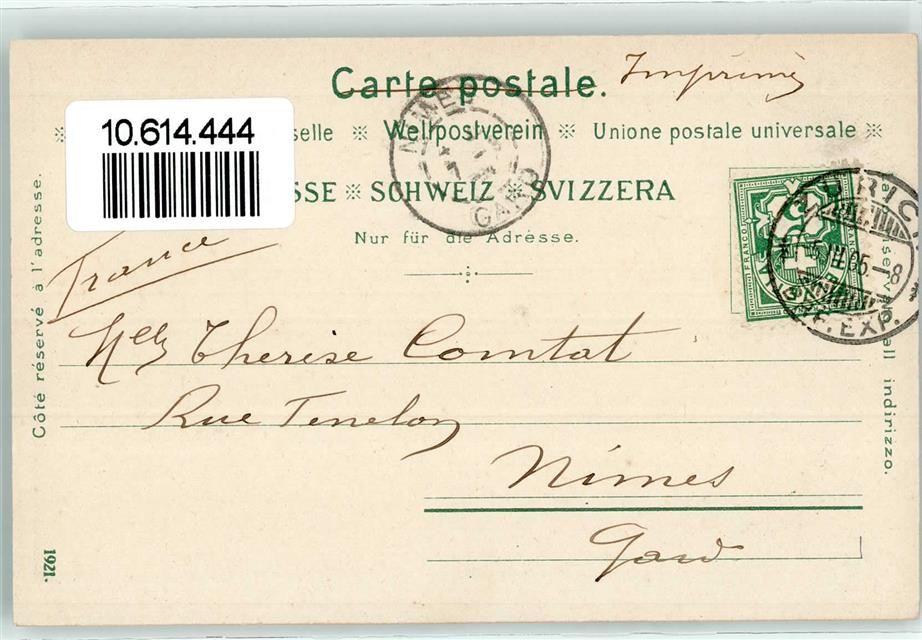 Carte postale. Imprimé
10.614.444
selle ※ Weltpostverein ※ Unione postale universale ※
SSE ※ SCHWEIZ ※ SVIZZERA
Nur für die Adresse.
France
Melle Therese Comtat
Rue Fenelon
Nimes
Gard
Côté réservé à l'adresse.
1921.
all indirizzo.
FRANCO
NIMES
GARD
ZÜRICH
-8
BRF. EXP.